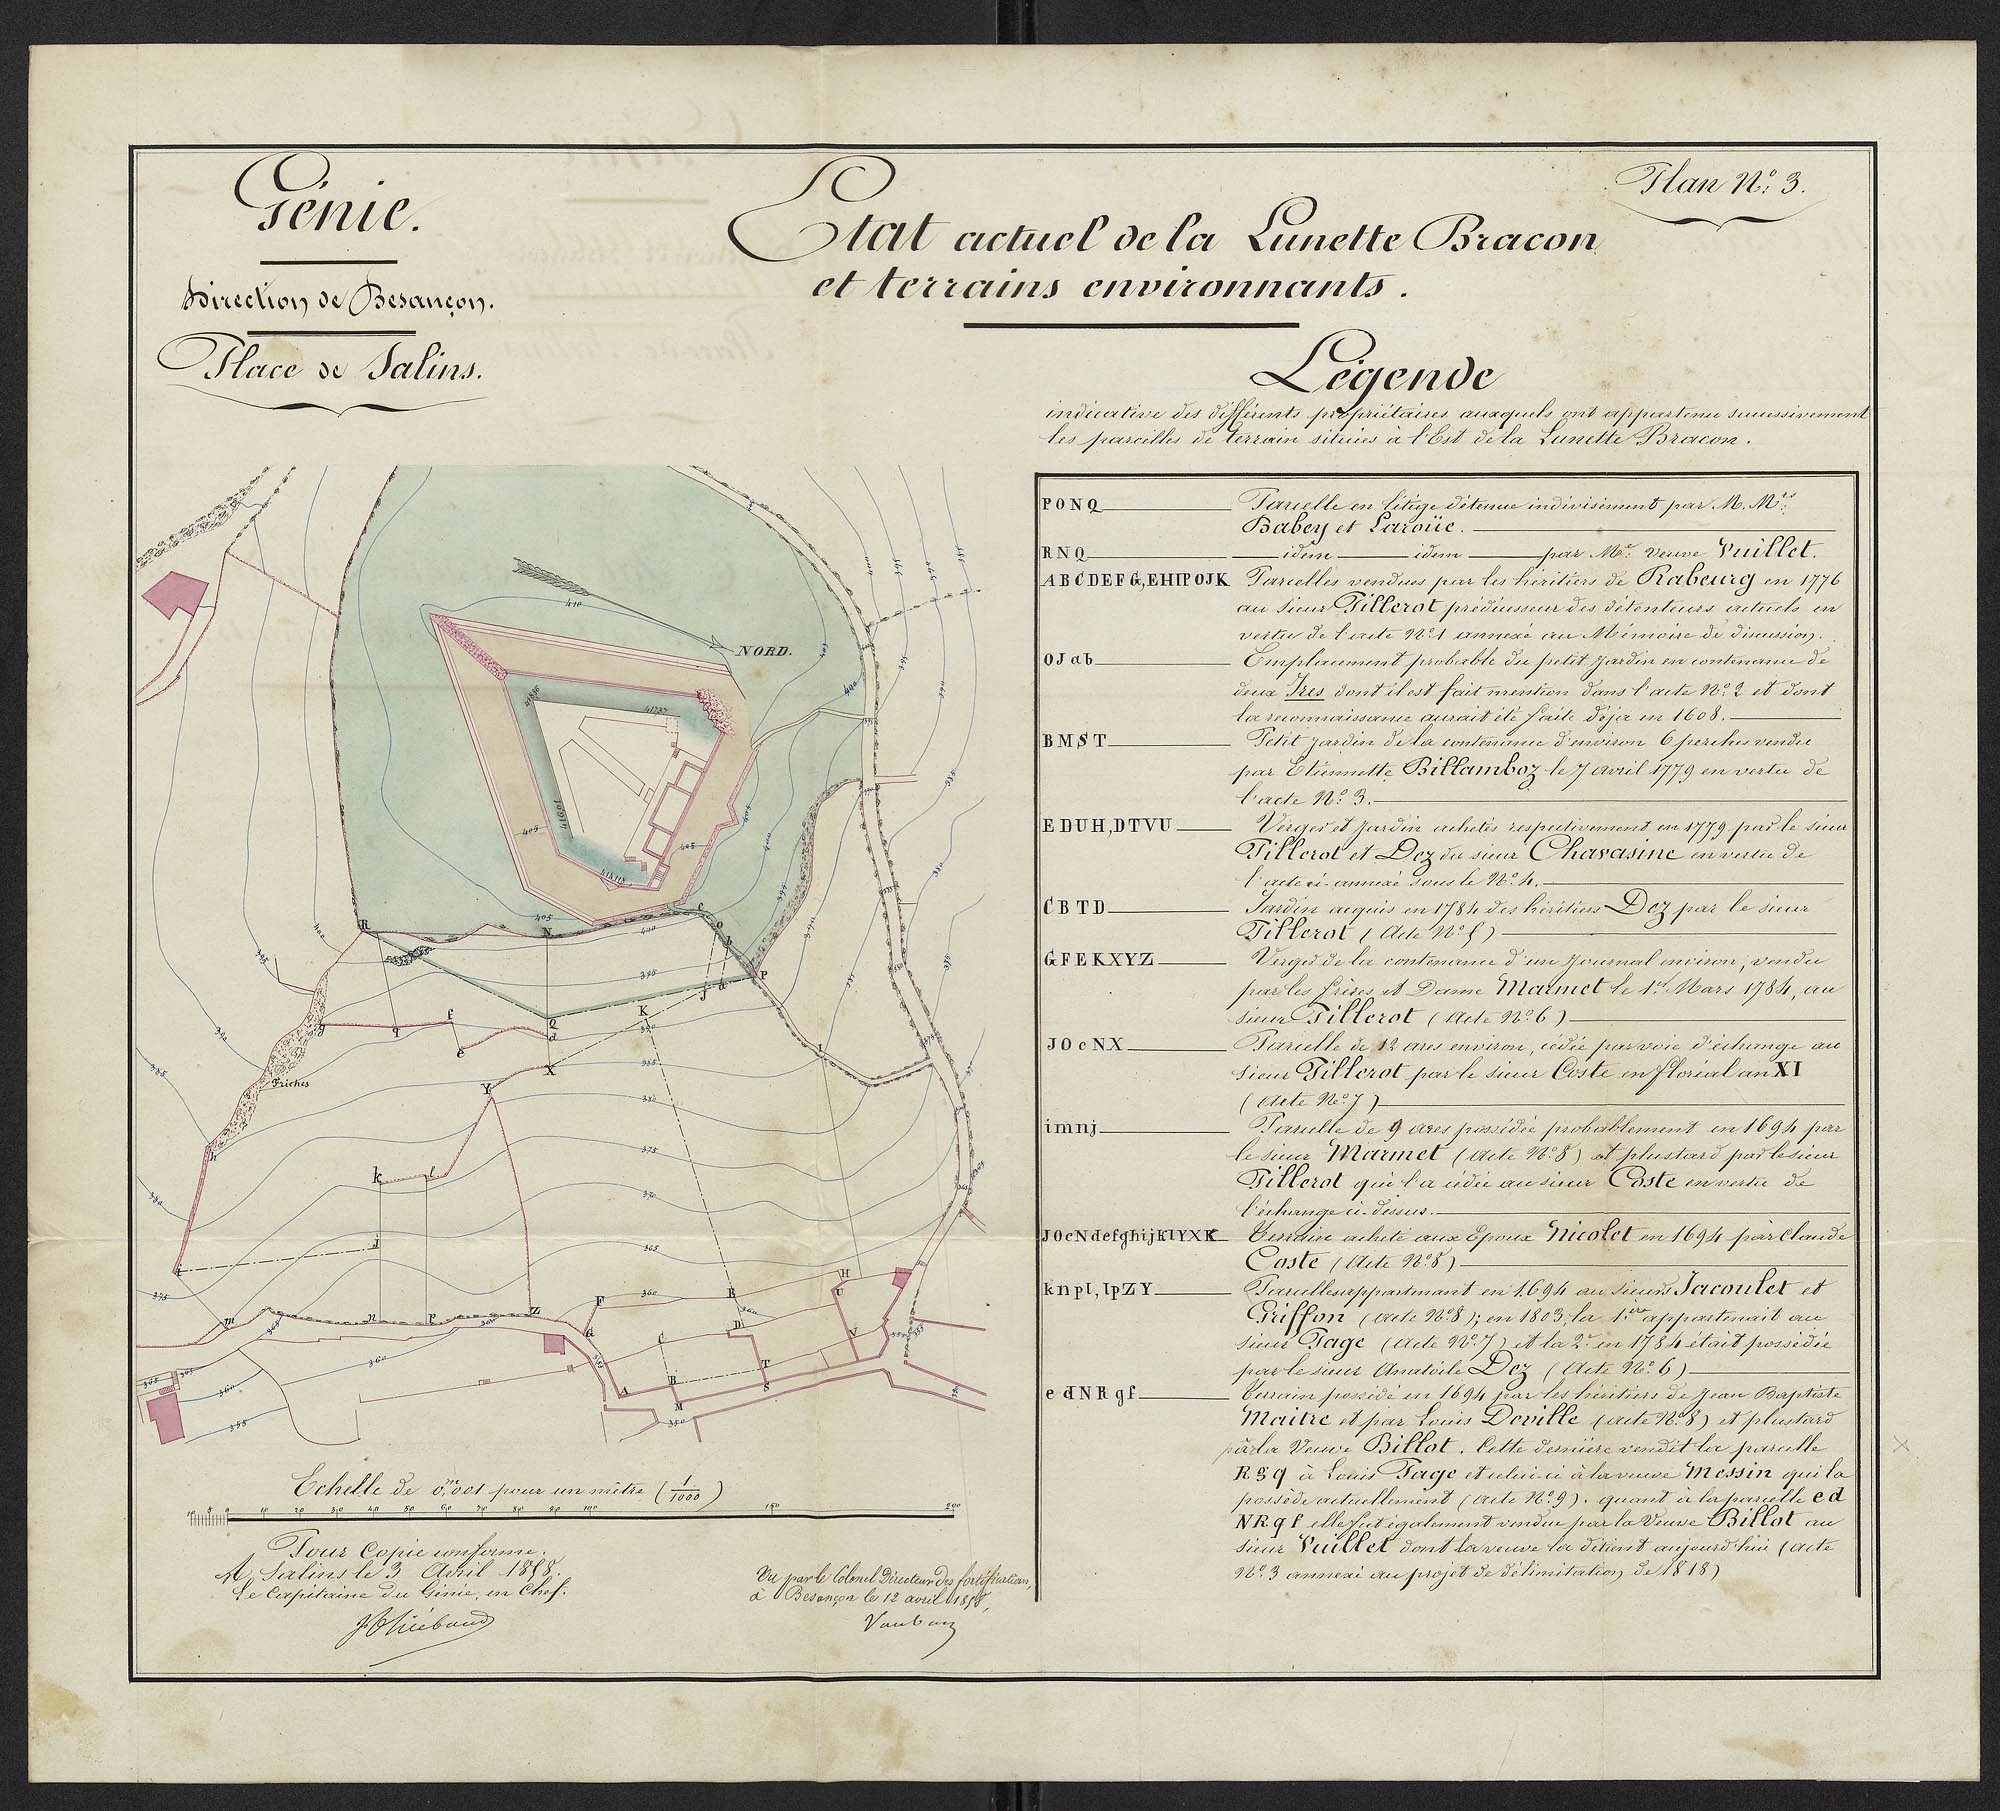 Génie.
Direction de Besançon.
Place de Salins.
Etat actuel de la Lunette Bracon
et terrains environnants.
Plan N.º 3.
Légende
indicative des différents propriétaires auxquels ont appartenu successivement
les parcelles de terrain situées à l'Est de la Lunette Bracon.
PONQ Parcelle en litige détenue indivisément par M. M.rs
Babey et Laroüe.
RNQ idem idem par Me. veuve Vuillet.
ABCDEFG,EHIPOJK Parcelles vendues par les héritiers de Rabeurg en 1776
au Sieur Tillerot prédécesseur des détenteurs actuels en
vertu de l'acte Nº 1 annexé au Mémoire de discussion.
OJab Emplacement probable du petit jardin en contenance de
deux Ires dont il est fait mention dans l'acte Nº 2 et dont
la reconnaissance aurait été faite déja en 1608.
BMST Petit jardin de la contenance d'environ 6 perches vendu
par Etiennette Billamboz le 7 avril 1779 en vertu de
l'acte Nº 3.
EDUH,DTVU Verger et jardin achetés respectivement en 1779 par le sieur
Tillerot et Dez du sieur Chavasine en vertu de
l'acte ci-annexé sous le Nº 4.
CBTD Jardin acquis en 1784 des héritiers Dez par le sieur
Tillerot (Acte Nº 5)
GFEKXYZ Verger de la contenance d'un Journal environ, vendu
par les frères et Dame Marmet le 1er Mars 1784, au
sieur Tillerot (Acte Nº 6)
JOcNX Parcelle de 12 ares environ, cédée par voie d'échange au
Sieur Tillerot par le sieur Coste en floréal an XI
(Acte Nº 7)
imnj Parcelle de 9 ares possédée probablement en 1694 par
le sieur Marmet (Acte Nº 8) et plus tard par le sieur
Tillerot qui l'a cédée au sieur Coste en vertu de
l'échange ci-dessus.
JOcNdefghijklYXK Terrain acheté aux Epoux Nicolet en 1694 par Claude
Coste (Acte Nº 8)
knpl,lpZY Parcelles appartenant en 1694 aux sieurs Jacoulet et
Griffon (acte Nº 8); en 1803, la 1ere appartenait au
sieur Page (Acte Nº 7) et la 2e en 1784 était possédée
par le sieur Anatoile Dez (Acte Nº 6)
edNRgf Terrain possédé en 1694 par les héritiers de Jean Baptiste
Maitre et par Louis Deville (acte Nº 8) et plus tard
par la Veuve Billot. Cette dernière vendit la parcelle
Rgq à Louis Page et celui-ci à la veuve Messin qui la
possède actuellement (acte Nº 9). quant à la parcelle ed
NRqf elle fut également vendue par la Veuve Billot au
sieur Vuillet dont la veuve la détient aujourd'hui (acte
Nº 3 annexé au projet de délimitation de 1818)
NORD.
410
405
400
395
390
385
380
375
370
365
360
355
350
Friches
R
N
c
o
b
P
J
a
K
Q
d
X
Y
g
q
f
e
h
i
k
l
j
m
n
p
Z
G
F
E
H
U
D
C
V
T
S
B
A
M
I
Echelle de 0,m001 pour un mètre (1/1000)
10 5 0 10 20 30 40 50 60 70 80 90 100 150 200
Pour Copie conforme.
A Salins le 3 Avril 1858.
Le Capitaine du Génie, en Chef.
Thiébaud
Vu par le Colonel Directeur des fortifications,
à Besançon le 12 avril 1858,